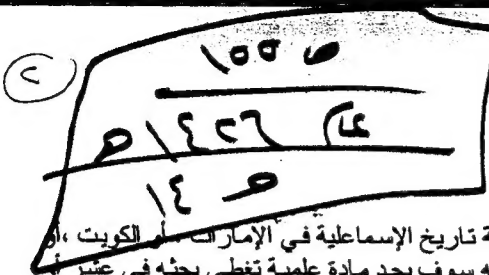 ٢
ص ١٥٥
عام ١٤٢٦ هـ
ص ١٤
ة تاريخ الإسماعلية في الإمارات ، أو الكويت ، أو
ه سوف يجد مادة علمية تغطي بحثه في عشر أو